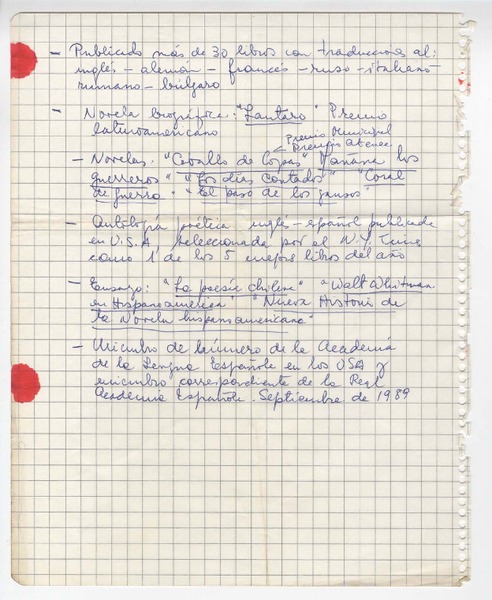 - Publicado más de 30 libros con traducciones al:
inglés - alemán - francés - ruso - italiano -
rumano - búlgaro
- Novela biográfica: "Lautaro" Premio
latinoamericano
Premio Municipal
Premio Atenea
- Novelas. "Caballo de Copas" "Mañana los
guerreros" "Los días contados" "Coral
de guerra" "El paso de los gansos"
- Antología poética inglés-español publicada
en U.S.A, seleccionada por el N.Y. Times
como 1 de los 5 mejores libros del año
- Ensayo: "La poesía chilena" "Walt Whitman
en Hispanoamérica" "Nueva Historia de
la Novela hispanoamericana"
- Miembro de número de la Academia
de la Lengua Española en los USA y
miembro correspondiente de la Real
Academia Española. Septiembre de 1989